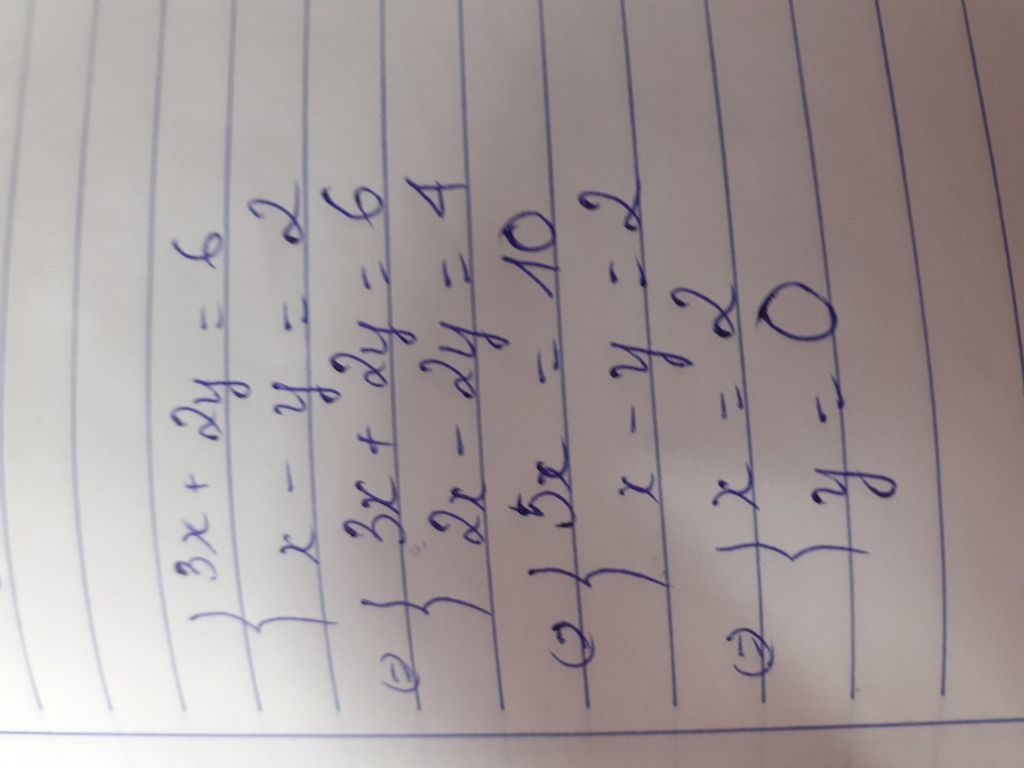 { 3x + 2y = 6
x - y = 2
⇔ { 3x + 2y = 6
2x - 2y = 4
⇔ { 5x = 10
x - y = 2
⇔ { x = 2
y = 0